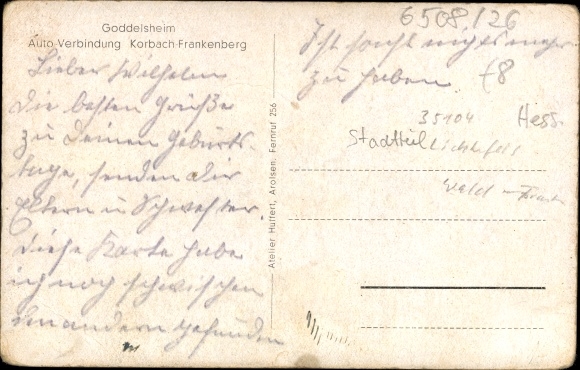 Goddelsheim
Auto-Verbindung Korbach-Frankenberg
Lieber Wilhelm
die besten Grüße
zu Deinem Geburts-
tage, senden Dir
Eltern u Schwester.
Diese Karte habe
ich noch zwischen
den andern gefunden
Atelier Hulfert, Arolsen. Fernruf 256
6508/26
Ist sonst nichts mehr
zu haben. f8
35104 Hess.
Stadtteil Lichtenfels
Wald - Frank